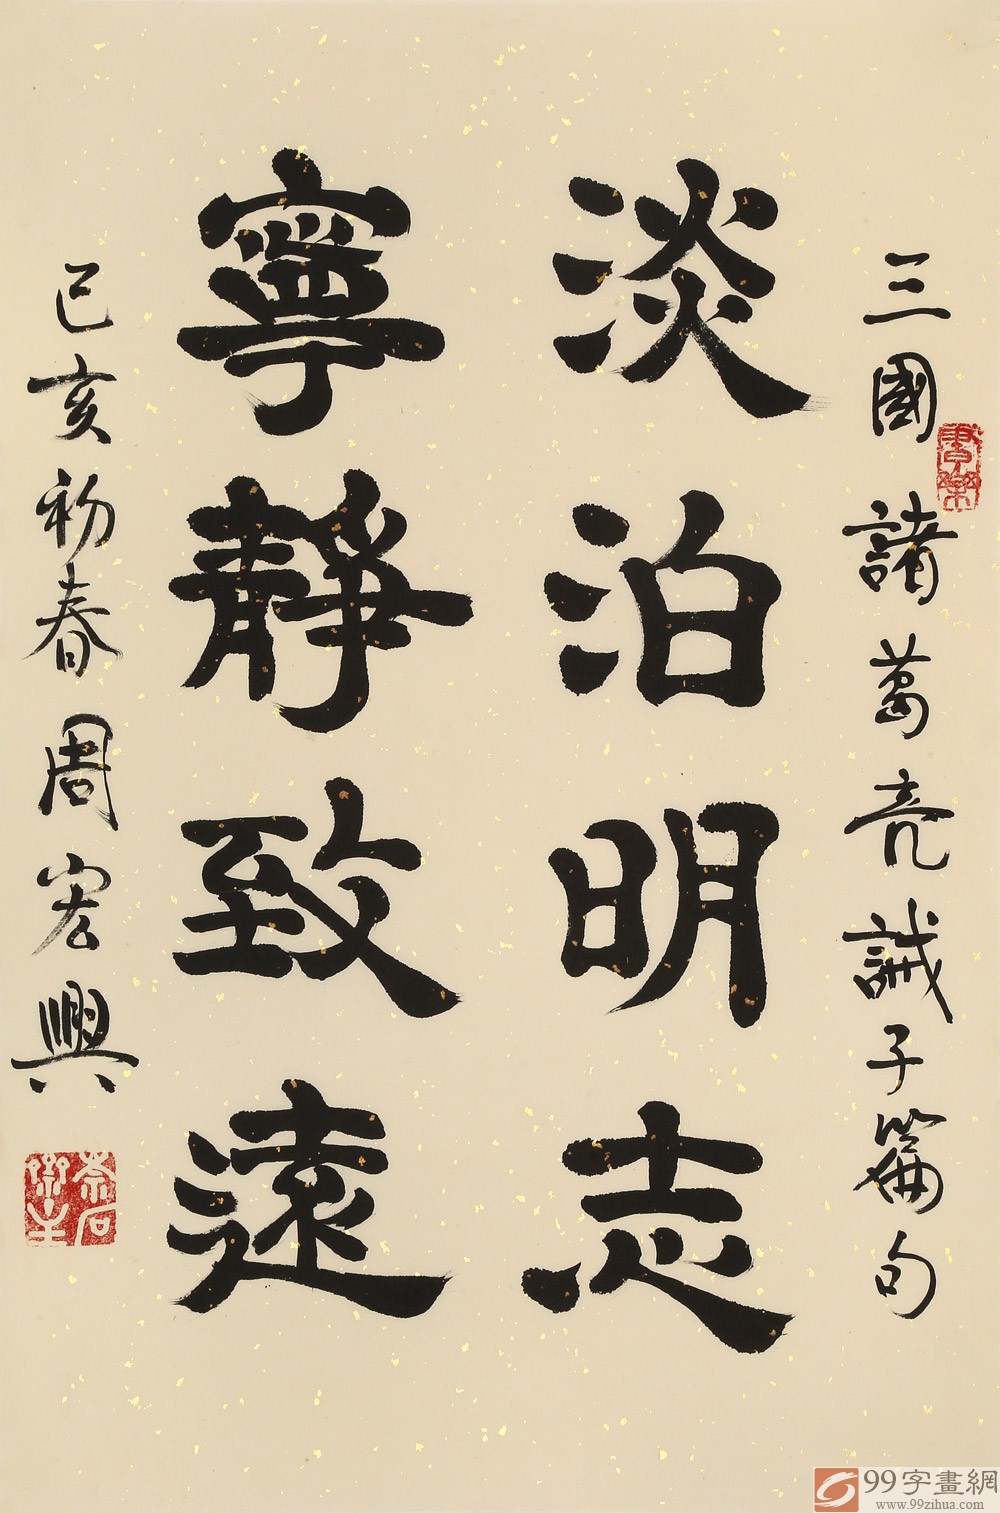 三國諸葛亮誡子篇句
淡泊明志
寧靜致遠
己亥初春周宏興
99字畫網
www.99zihua.com